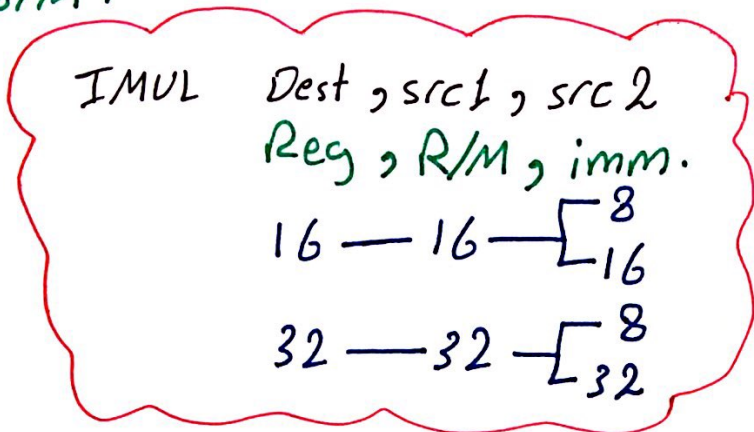 IMUL Dest, src1, src2
Reg, R/M, imm.
16 — 16 — 8
16
32 — 32 — 8
32